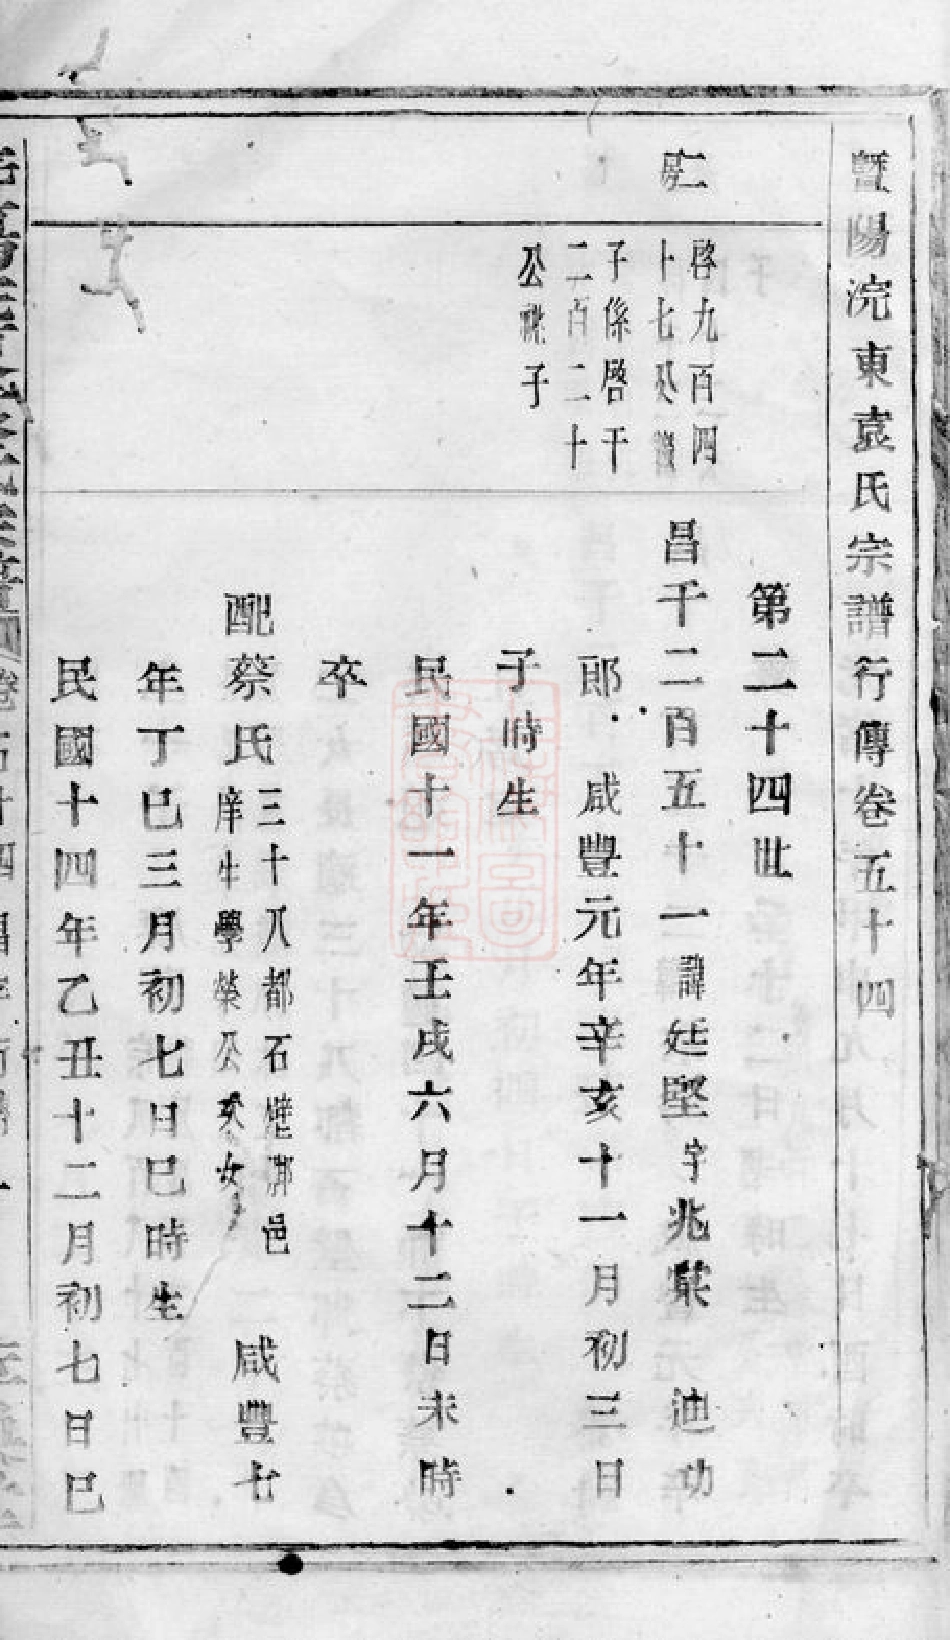 暨陽浣東袁氏宗譜行傳卷五十四
二房
啓九百四
十七公繼
子係啓千
二百二十
公祧子
第二十四世
昌千二百五十一諱廷堅字兆榮 迪功
郎 咸豐元年辛亥十一月初三日
子時生
民國十一年壬戌六月十二日未時
卒
配蔡氏三十八都石壁鄉邑
庠生學榮公次女 咸豐七
年丁巳三月初七日巳時生
民國十四年乙丑十二月初七日巳